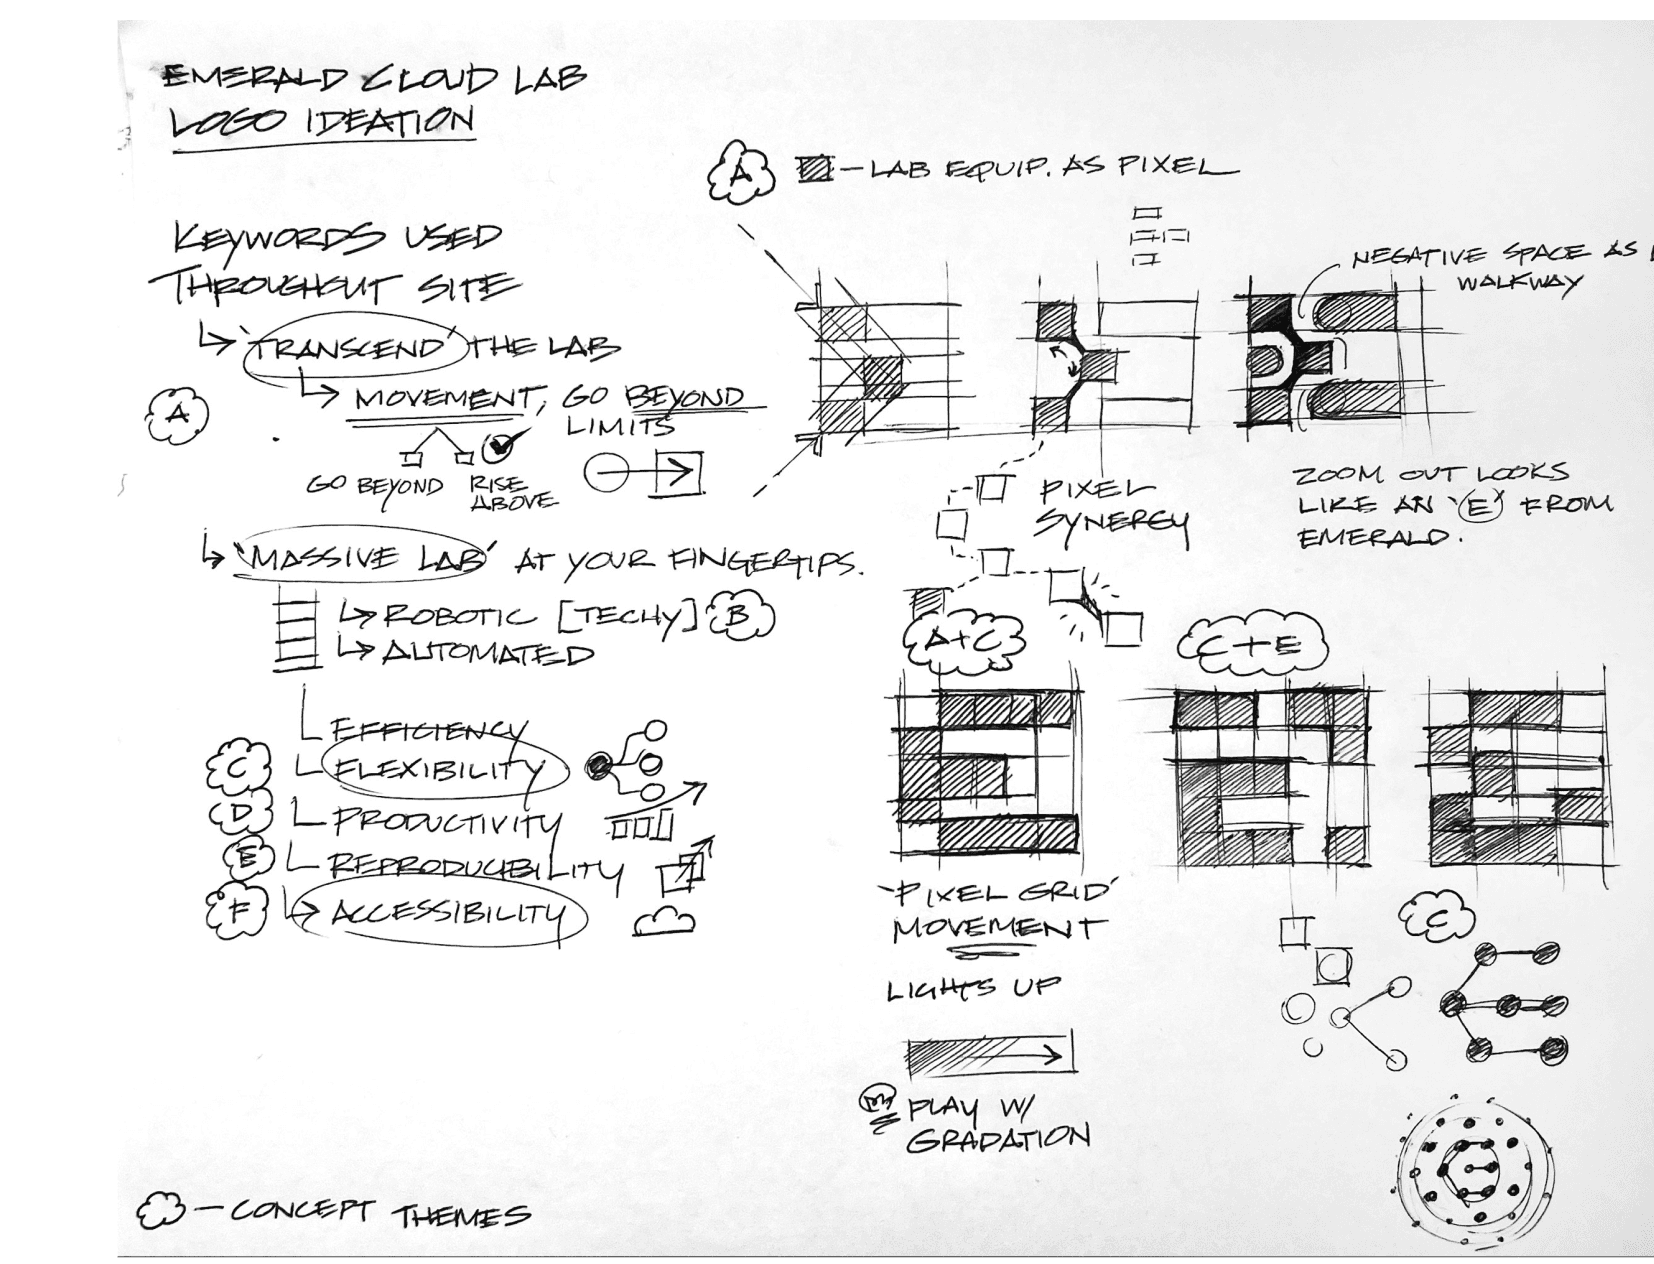 EMERALD CLOUD LAB
LOGO IDEATION
KEYWORDS USED
THROUGHOUT SITE
'TRANSCEND' THE LAB
MOVEMENT, GO BEYOND
LIMITS
A
GO BEYOND
RISE
ABOVE
'MASSIVE LAB' AT YOUR FINGERTIPS.
ROBOTIC [TECHY] B
AUTOMATED
EFFICIENCY
C FLEXIBILITY
D PRODUCTIVITY
E REPRODUCIBILITY
F ACCESSIBILITY
— CONCEPT THEMES
A — LAB EQUIP. AS PIXEL
NEGATIVE SPACE AS
WALKWAY
PIXEL
SYNERGY
ZOOM OUT LOOKS
LIKE AN 'E' FROM
EMERALD.
A+C
C+E
'PIXEL GRID'
MOVEMENT
LIGHTS UP
PLAY W/
GRADATION
C